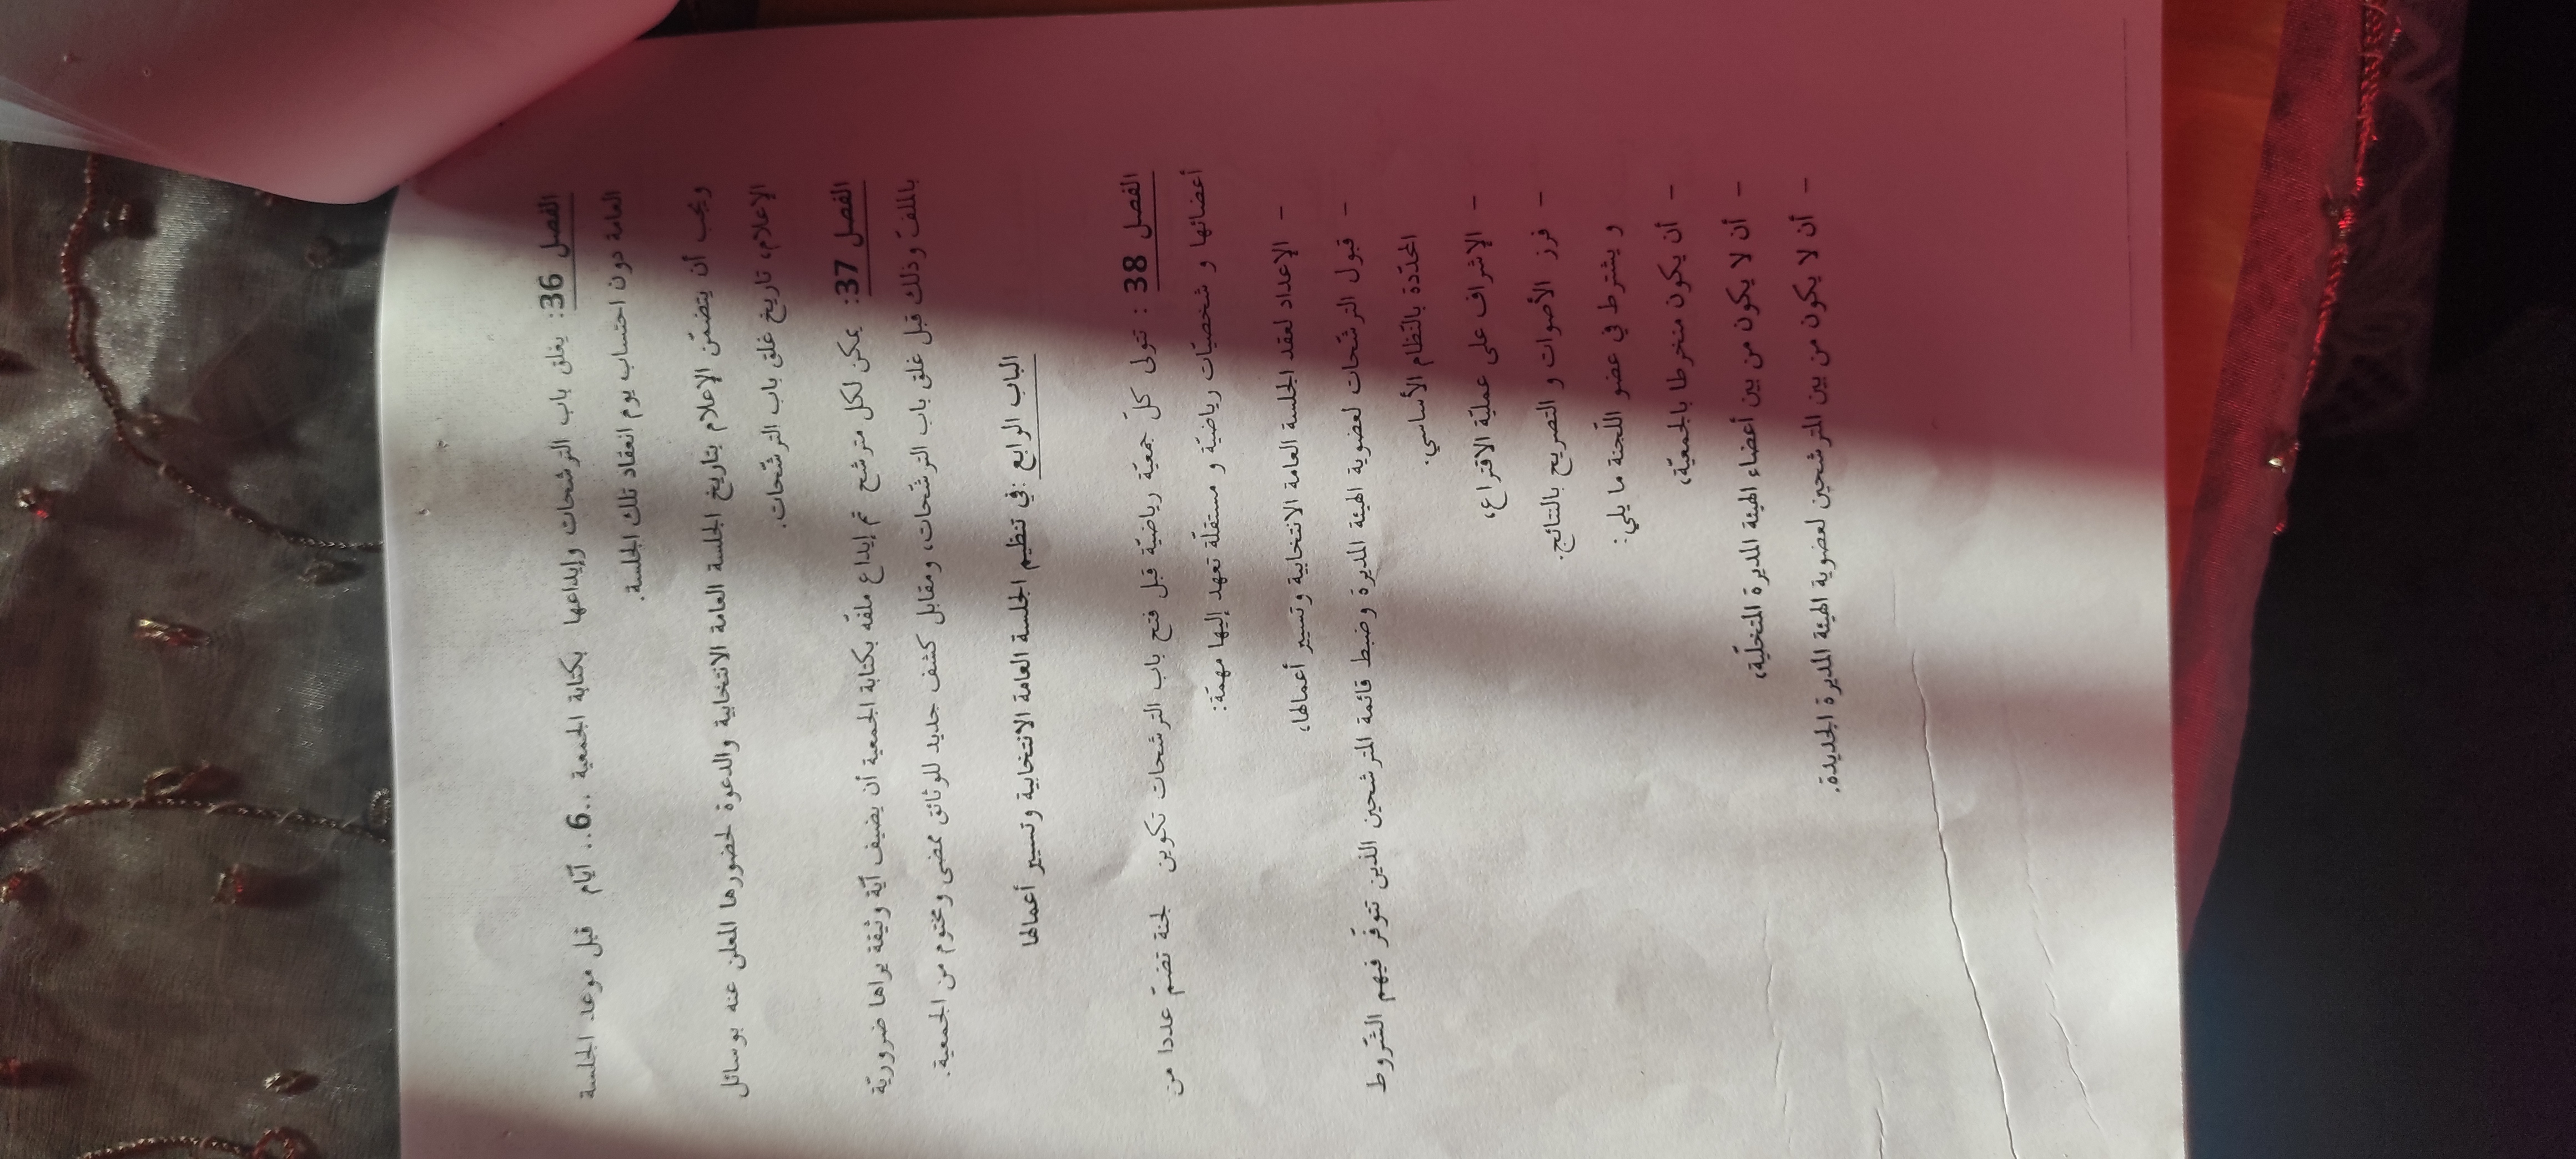 الفصل 36: يغلق باب الترشحات وإيداعها بكتابة الجمعية ..6.. أيّام قبل موعد الجلسة
العامة دون احتساب يوم انعقاد تلك الجلسة.
ويجب أن يتضمّن الإعلام بتاريخ الجلسة العامة الانتخابية والدعوة لحضورها المعلن عنه بوسائل
الإعلام، تاريخ غلق باب الترشّحات.
الفصل 37: يمكن لكل مترشح تم إيداع ملفّه بكتابة الجمعية أن يضيف أيّة وثيقة يراها ضروريّة
بالملفّ وذلك قبل غلق باب الترشّحات، ومقابل كشف جديد للوثائق ممضى ومختوم من الجمعية.
الباب الرابع :في تنظيم الجلسة العامة الانتخابية وتسيير أعمالها
الفصل 38 : تتولى كلّ جمعيّة رياضيّة قبل فتح باب الترشحات تكوين لجنة تضمّ عددا من
أعضائها و شخصيّات رياضيّة و مستقلّة تعهد إليها مهمّة:
– الإعداد لعقد الجلسة العامة الانتخابية وتسيير أعمالها،
– قبول الترشّحات لعضوية الهيئة المديرة وضبط قائمة المترشحين الذين تتوفّر فيهم الشّروط
المحدّدة بالنّظام الأساسي.
– الإشراف على عمليّة الاقتراع،
– فرز الأصوات و التصريح بالنتائج.
و يشترط في عضو اللّجنة ما يلي:
– أن يكون منخرطا بالجمعيّة،
– أن لا يكون من بين أعضاء الهيئة المديرة المتخلّية،
– أن لا يكون من بين المترشحين لعضوية الهيئة المديرة الجديدة.